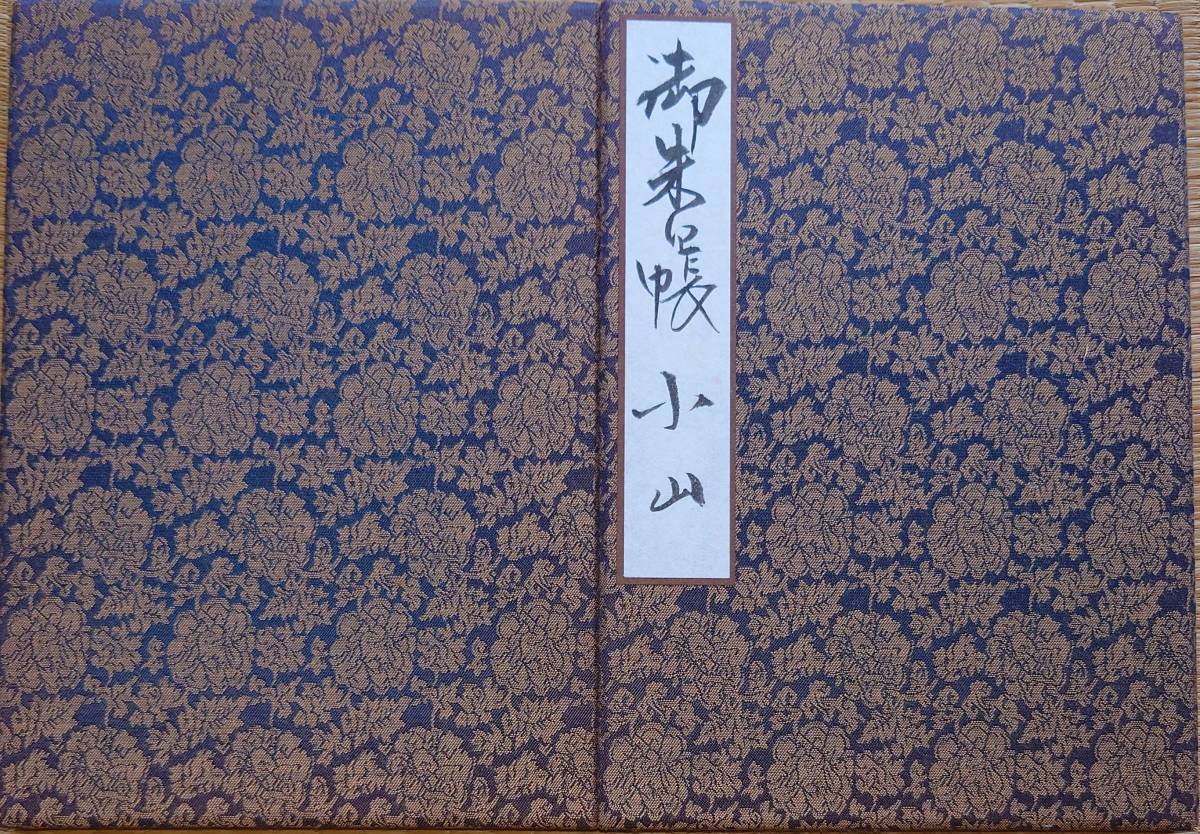 御朱印帳 小山